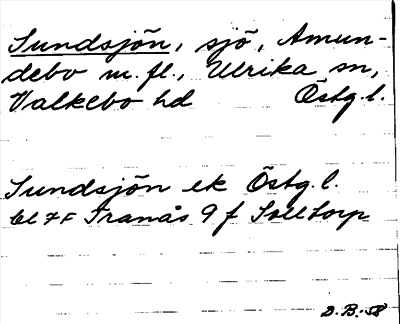 Sundsjön, sjö, Amun-
debo m. fl., Ulrika sn,
Valkebo hd Östg.l.
Sundsjön ek Östg.l.
bl 7F Tranås 9 f Solltorp
D.B.-58